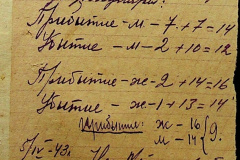 Прибытие - м - 7 + 7 = 14
Убытие - м - 2 + 10 = 12
Прибытие - ж - 2 + 14 = 16
Убытие - ж - 1 + 13 = 14
Прибытие: ж - 16
м - 14 } 9.
5/IV-43г.